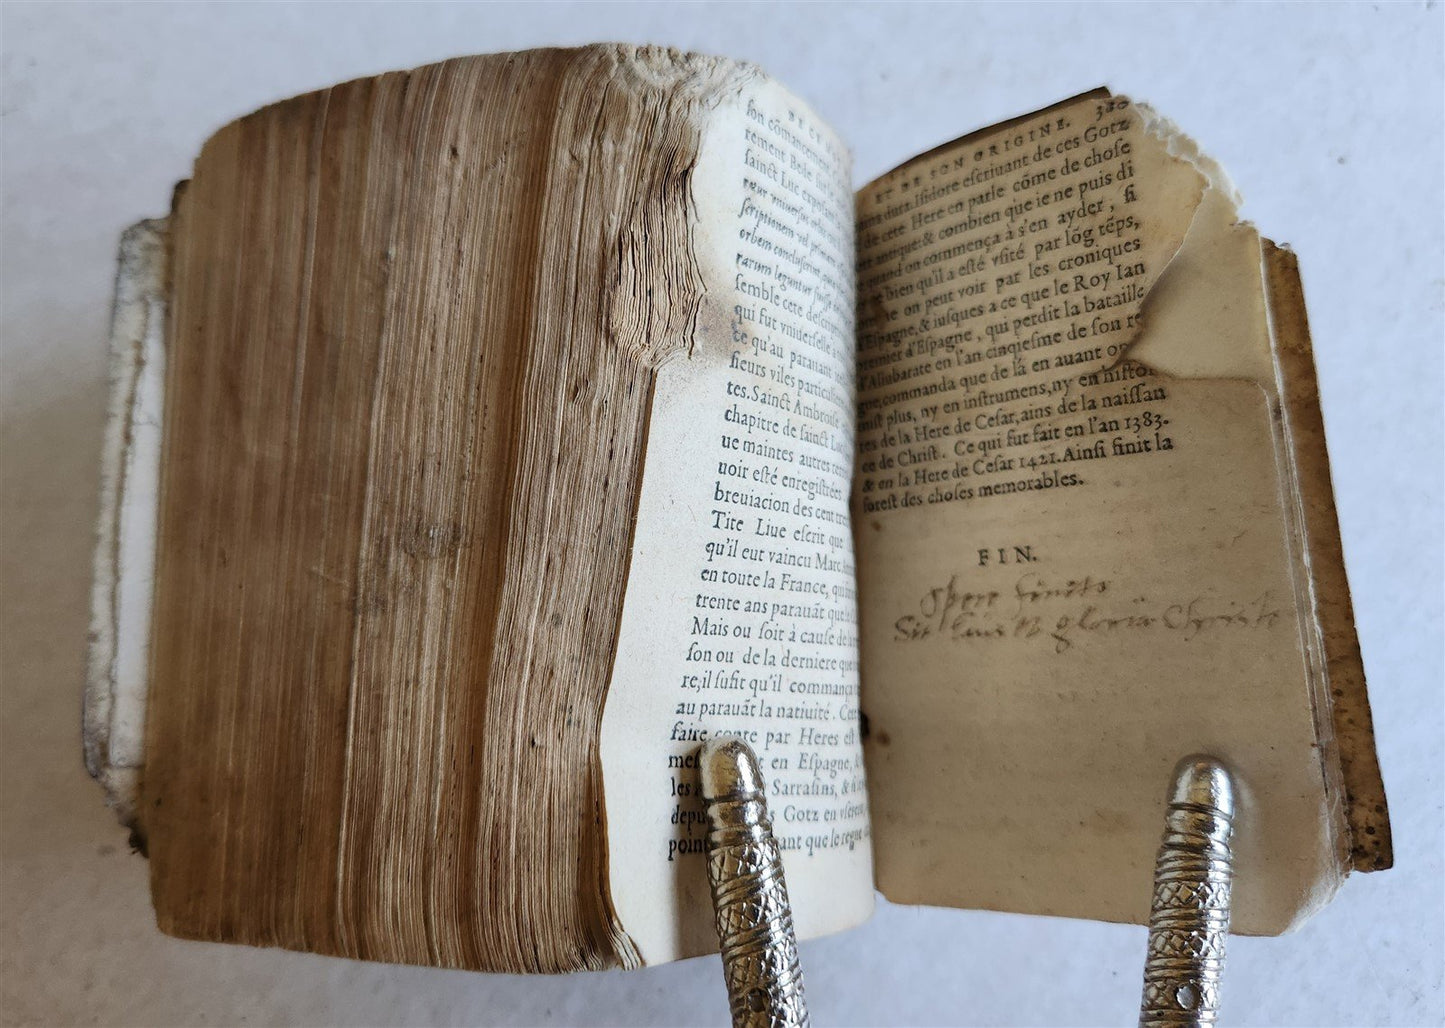 DE CE M
ſon cõmancement
rement Bede ſur
ſainct Luc expoſant
orbem concluſerint
rarum leguntur fuiſſe
ſemble cete deſcrip
qui fut vniuerſelle
ce qu'au parauant
ſieurs viles particulie
tes. Sainct Ambroiſe
chapitre de ſainct Luc
ue maintes autres terres
uoir eſté enregiſtrées
breuiacion des cent
Tite Liue eſcrit que
qu'il eut vaincu Marc
en toute la France, qui
trente ans parauãt que
Mais ou ſoit à cauſe de
ſon ou de la derniere que
re, il ſufit qu'il commança
au parauãt la natiuité.
faire conte par Heres eſt
en Eſpagne, &
les Sarraſins, &
depu s Gotz en vſerent
point ant que le regne
ET DE SON ORIGINE. 380
dura. Iſidore eſcriuant de ces Gotz
de cete Here en parle cõme de choſe
antique: & combien que ie ne puis di
quand on commença à s'en ayder, ſi
bien qu'il a eſté vſité par lõg tẽps,
on peut voir par les croniques
d'Eſpagne, & iuſques a ce que le Roy Ian
premier d'Eſpagne, qui perdit la bataille
d'Aliubarate en l'an cinqieſme de ſon re
gue, commanda que de là en auant on
miſt plus, ny en inſtrumens, ny en hiſtoi
res de la Here de Ceſar, ains de la naiſſan
ce de Chriſt. Ce qui fut fait en l'an 1383.
& en la Here de Ceſar 1421. Ainſi finit la
foreſt des choſes memorables.
FIN.
Opere finito
Sit laus & gloria Christo